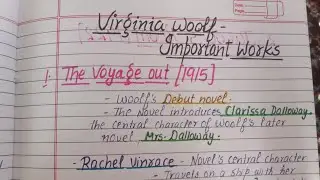 Virginia Woolf -
Important Works
1. The Voyage out [1915]
- Woolf's Debut novel.
- The Novel introduces Clarissa Dalloway,
the central character of Woolf's later
novel, Mrs. Dalloway.
- Rachel Vinrace - Novel's central character
- Travels on a ship with her